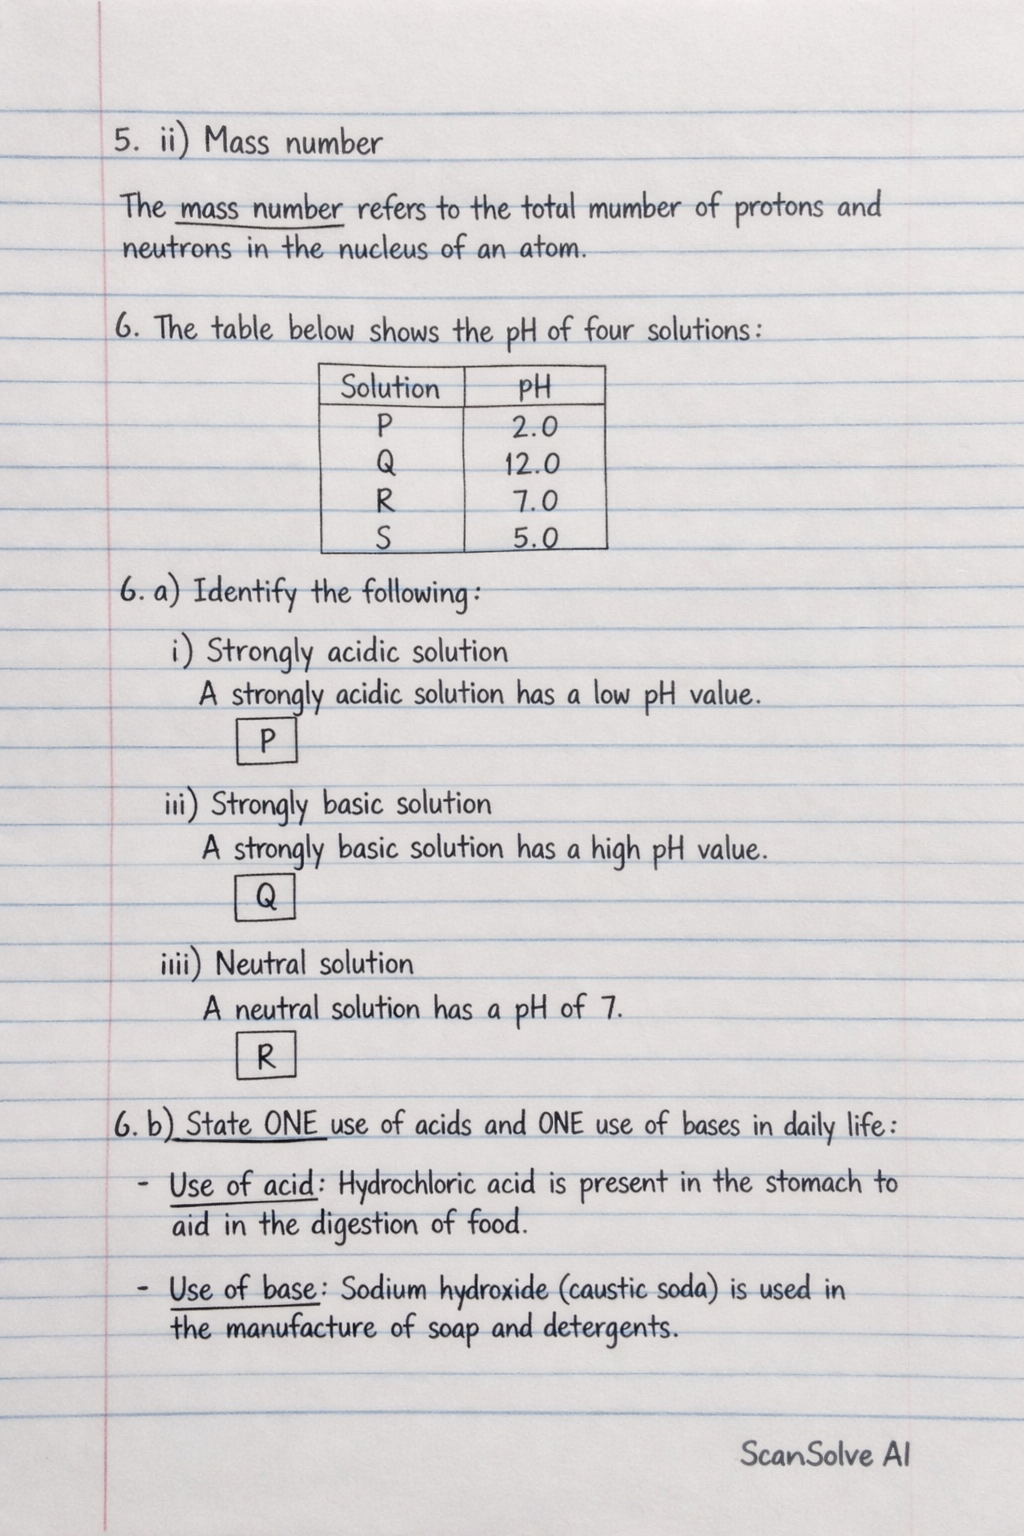 5. ii) Mass number
The mass number refers to the total mumber of protons and
neutrons in the nucleus of an atom.
6. The table below shows the pH of four solutions:
Solution pH
P 2.0
Q 12.0
R 7.0
S 5.0
6. a) Identify the following:
i) Strongly acidic solution
A strongly acidic solution has a low pH value.
P
iii) Strongly basic solution
A strongly basic solution has a high pH value.
Q
iiii) Neutral solution
A neutral solution has a pH of 7.
R
6. b) State ONE use of acids and ONE use of bases in daily life:
- Use of acid: Hydrochloric acid is present in the stomach to
aid in the digestion of food.
- Use of base: Sodium hydroxide (caustic soda) is used in
the manufacture of soap and detergents.
ScanSolve AI